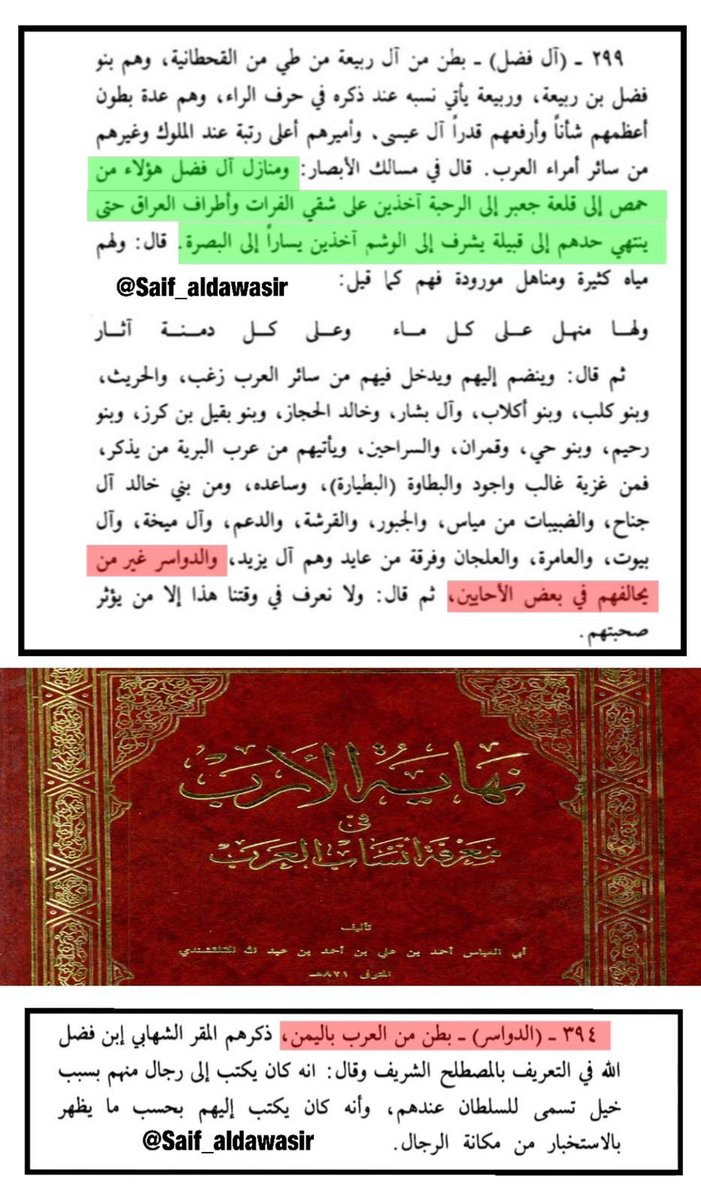 ٢٩٩ ـ (آل فضل) ـ بطن من آل ربيعة من طي من القحطانية، وهم بنو
فضل بن ربيعة، وربيعة يأتي نسبه عند ذكره في حرف الراء، وهم عدة بطون
أعظمهم شأناً وأرفعهم قدراً آل عيسى، وأميرهم أعلى رتبة عند الملوك وغيرهم
من سائر أمراء العرب. قال في مسالك الأبصار: ومنازل آل فضل هؤلاء من
حمص إلى قلعة جعبر إلى الرحبة آخذين على شقي الفرات وأطراف العراق حتى
ينتهي حدهم إلى قبيلة يشرف إلى الوشم آخذين يساراً إلى البصرة. قال: ولهم
مياه كثيرة ومناهل مورودة فهم كما قيل:
@Saif_aldawasir
ولها منهل على كل ماء وعلى كل دمنة آثار
ثم قال: وينضم إليهم ويدخل فيهم من سائر العرب زغب، والحريث،
وبنو كلب، وبنو أكلاب، وآل بشار، وخالد الحجاز، وبنو بقيل بن كرز، وبنو
رحيم، وبنو حي، وقمران، والسراحين، ويأتيهم من عرب البرية من يذكر،
فمن غزية غالب واجود والبطاوة (البطيارة)، وساعده، ومن بني خالد آل
جناح، والضبيبات من مياس، والجبور، والقرشة، والدعم، وآل ميخة، وآل
بيوت، والعامرة، والعلجان وفرقة من عايد وهم آل يزيد، والدواسر غير من
يحالفهم في بعض الأحايين، ثم قال: ولا نعرف في وقتنا هذا إلا من يؤثر
صحبتهم.
نهاية الأرب
في
معرفة أنساب العرب
تأليف
أبي العباس أحمد بن علي بن أحمد بن عبد الله القلقشندي
المتوفى ٨٢١هـ
٣٩٤ ـ (الدواسر) ـ بطن من العرب باليمن، ذكرهم المقر الشهابي إبن فضل
الله في التعريف بالمصطلح الشريف وقال: انه كان يكتب إلى رجال منهم بسبب
خيل تسمى للسلطان عندهم، وأنه كان يكتب إليهم بحسب ما يظهر
بالاستخبار من مكانة الرجال.
@Saif_aldawasir